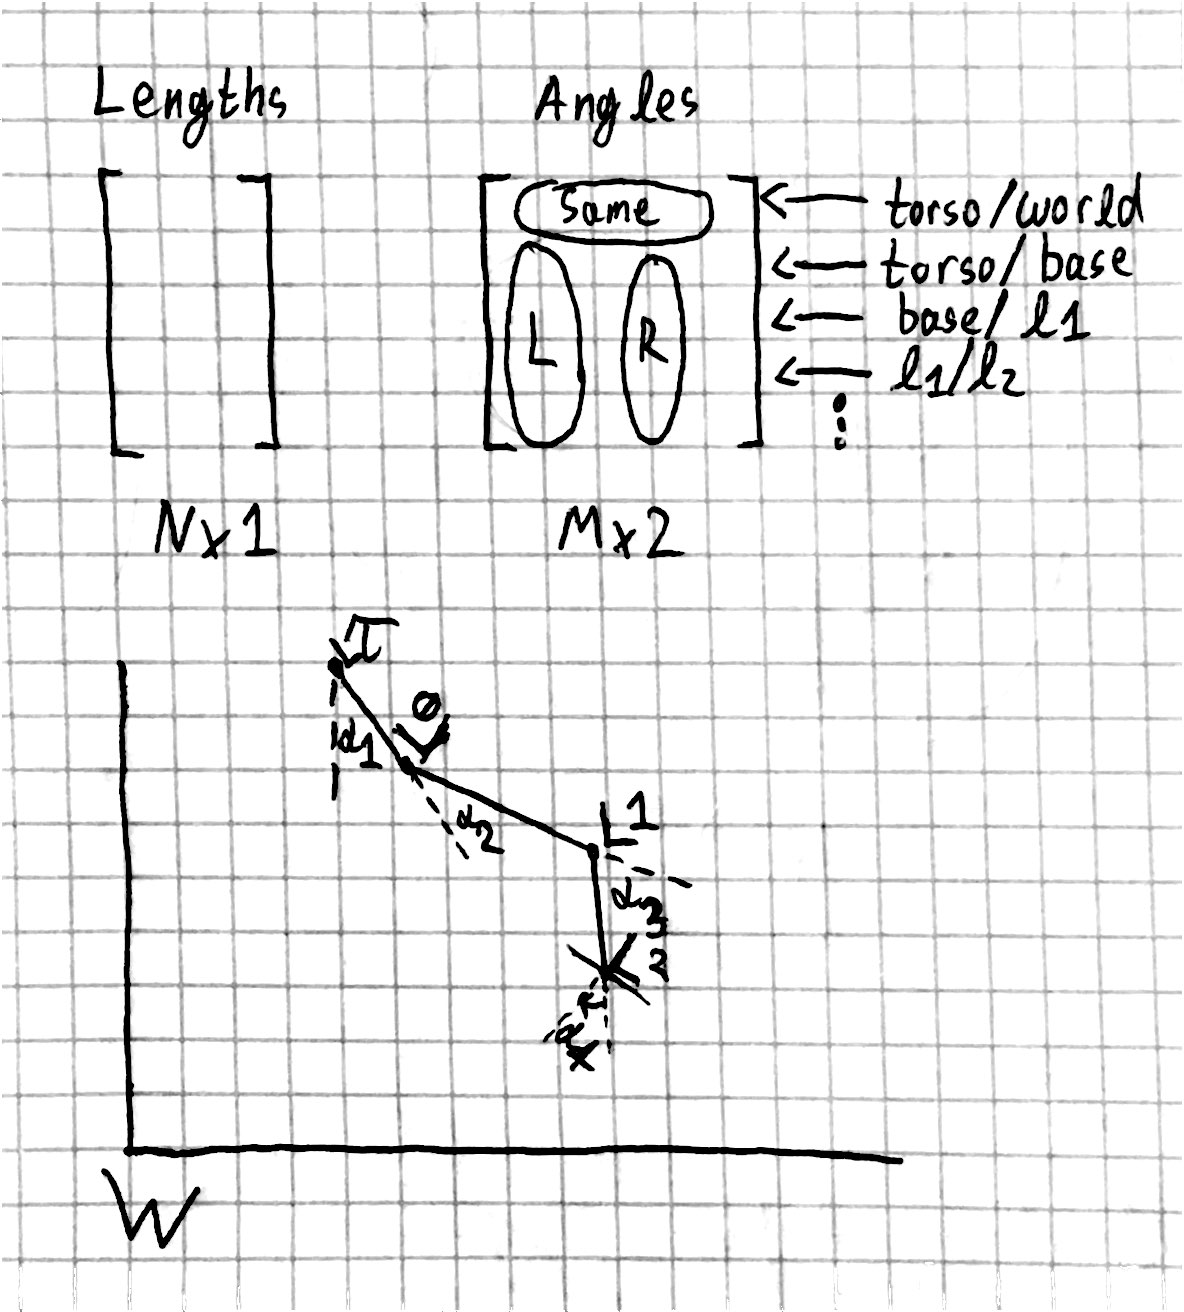 Lengths Angles
Same
torso/world
torso/base
L R
base/l1
l1/l2
⋮
N×1 M×2
T
0
α1
α2
1
α3
2
W